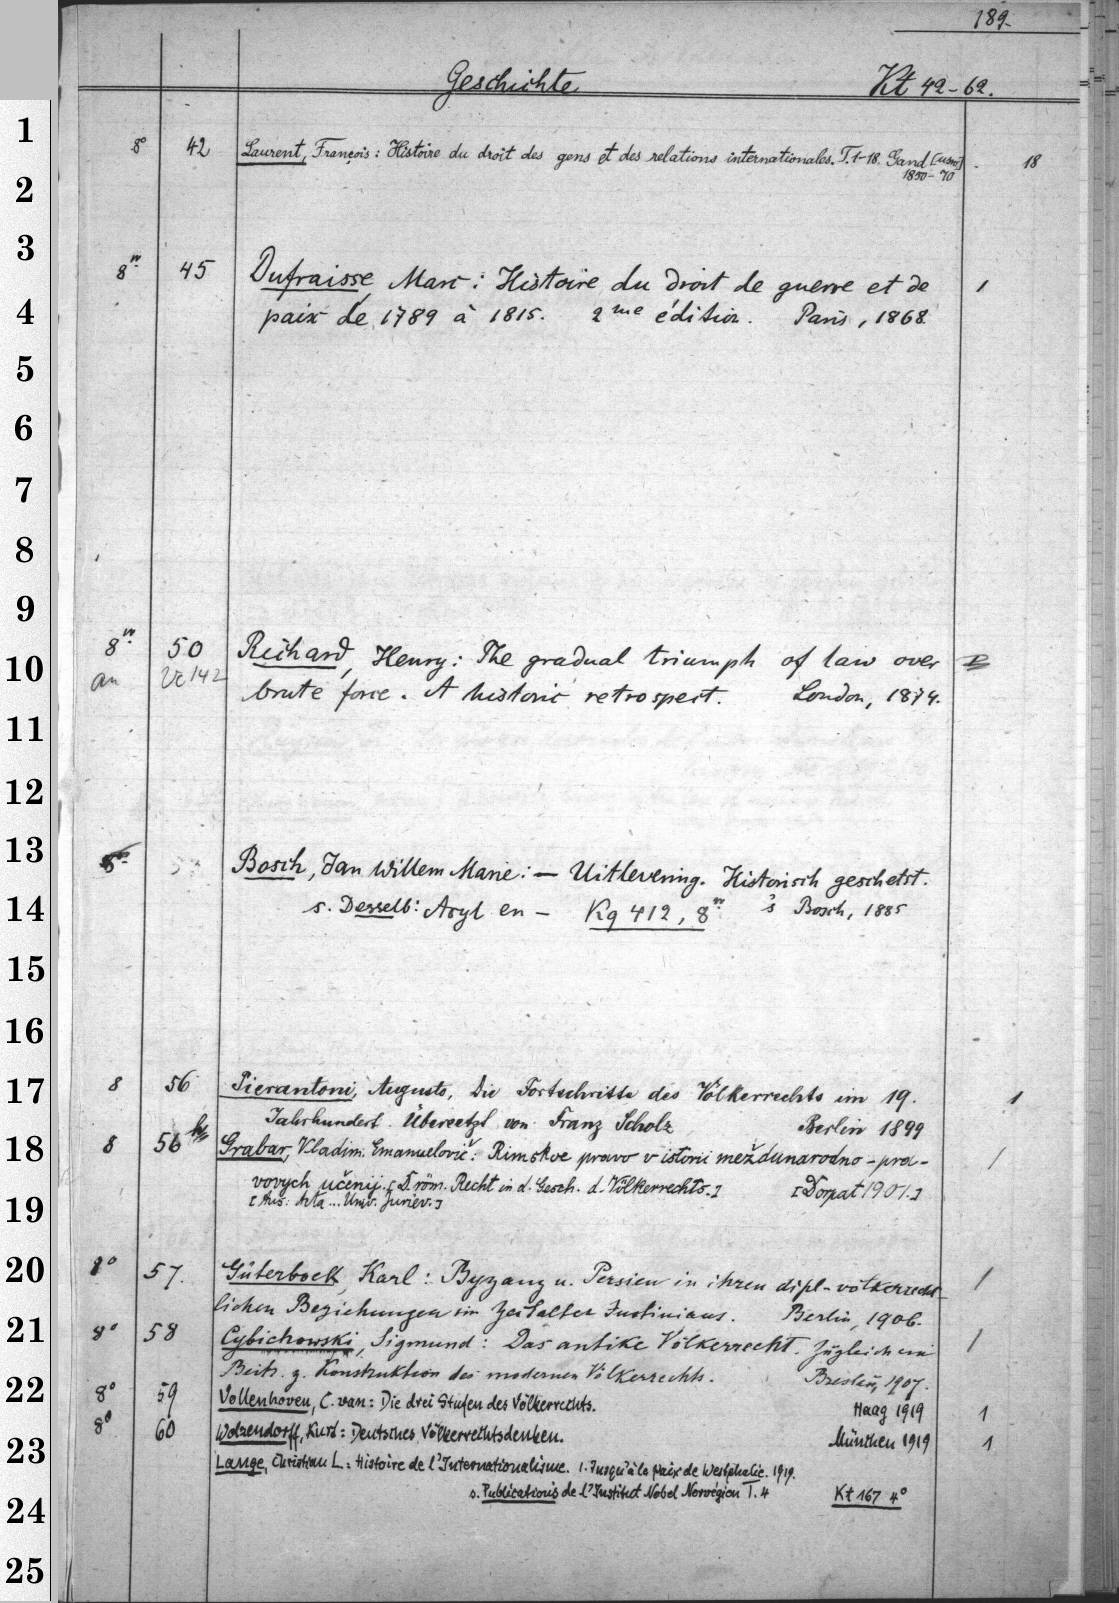 189.
Geschichte Kt 42-62.
1
8° 42 Laurent, François: Histoire du droit des gens et des relations internationales. T. 1-18. Gand [usw] 18
1850-70
2
3
8° 45 Dufraisse, Marc: Histoire du droit de guerre et de 1
4
paix de 1789 à 1815. 2me édition. Paris, 1868
5
6
7
8
9
8° 50 Reichard, Henry: The gradual triumph of law over
10
an Vc 142 brute force. A historic retrospect. London, 1874.
11
12
13
8° Bosch, Jan Willem Marie: — Uitlevering. Historisch geschetst.
14
s. Desselb: Asyl en — Kg 412, 8° 's Bosch, 1885
15
16
17
8 56 Pierantoni, Augusto, Die Fortschritte des Völkerrechts im 19. 1
Jahrhundert. Übersetzt von Franz Scholz Berlin 1899
18
8 56 Grabar, Vladim. Emanuelovič: Rimskoe pravo v istorii meždunarodno-pra- 1
vovych učenij. [D. röm. Recht in d. Gesch. d. Völkerrechts.] [Dorpat 1901.]
19
[Aus: Acta ... Univ. Juriev.]
20
8° 57. Güterbock, Karl: Byzanz u. Persien in ihren dipl.-völkerrecht- 1
lichen Beziehungen im Zeitalter Justinians. Berlin, 1906.
21
8° 58 Cybichowski, Sigmund: Das antike Völkerrecht. Zugleich ein 1
Beitr. z. Konstruktion des modernen Völkerrechts. Breslau, 1907.
22
8° 59 Vollenhoven, C. van: Die drei Stufen des Völkerrechts. Haag 1919 1
8° 60 Wolzendorff, Kurt: Deutsches Völkerrechtsdenken. München 1919 1
23
Lange, Christian L.: Histoire de l'Internationalisme. 1. Jusqu'à la paix de Westphalie. 1919.
24
s. Publications de l'Institut Nobel Norvégien T. 4 Kt 167 4°
25